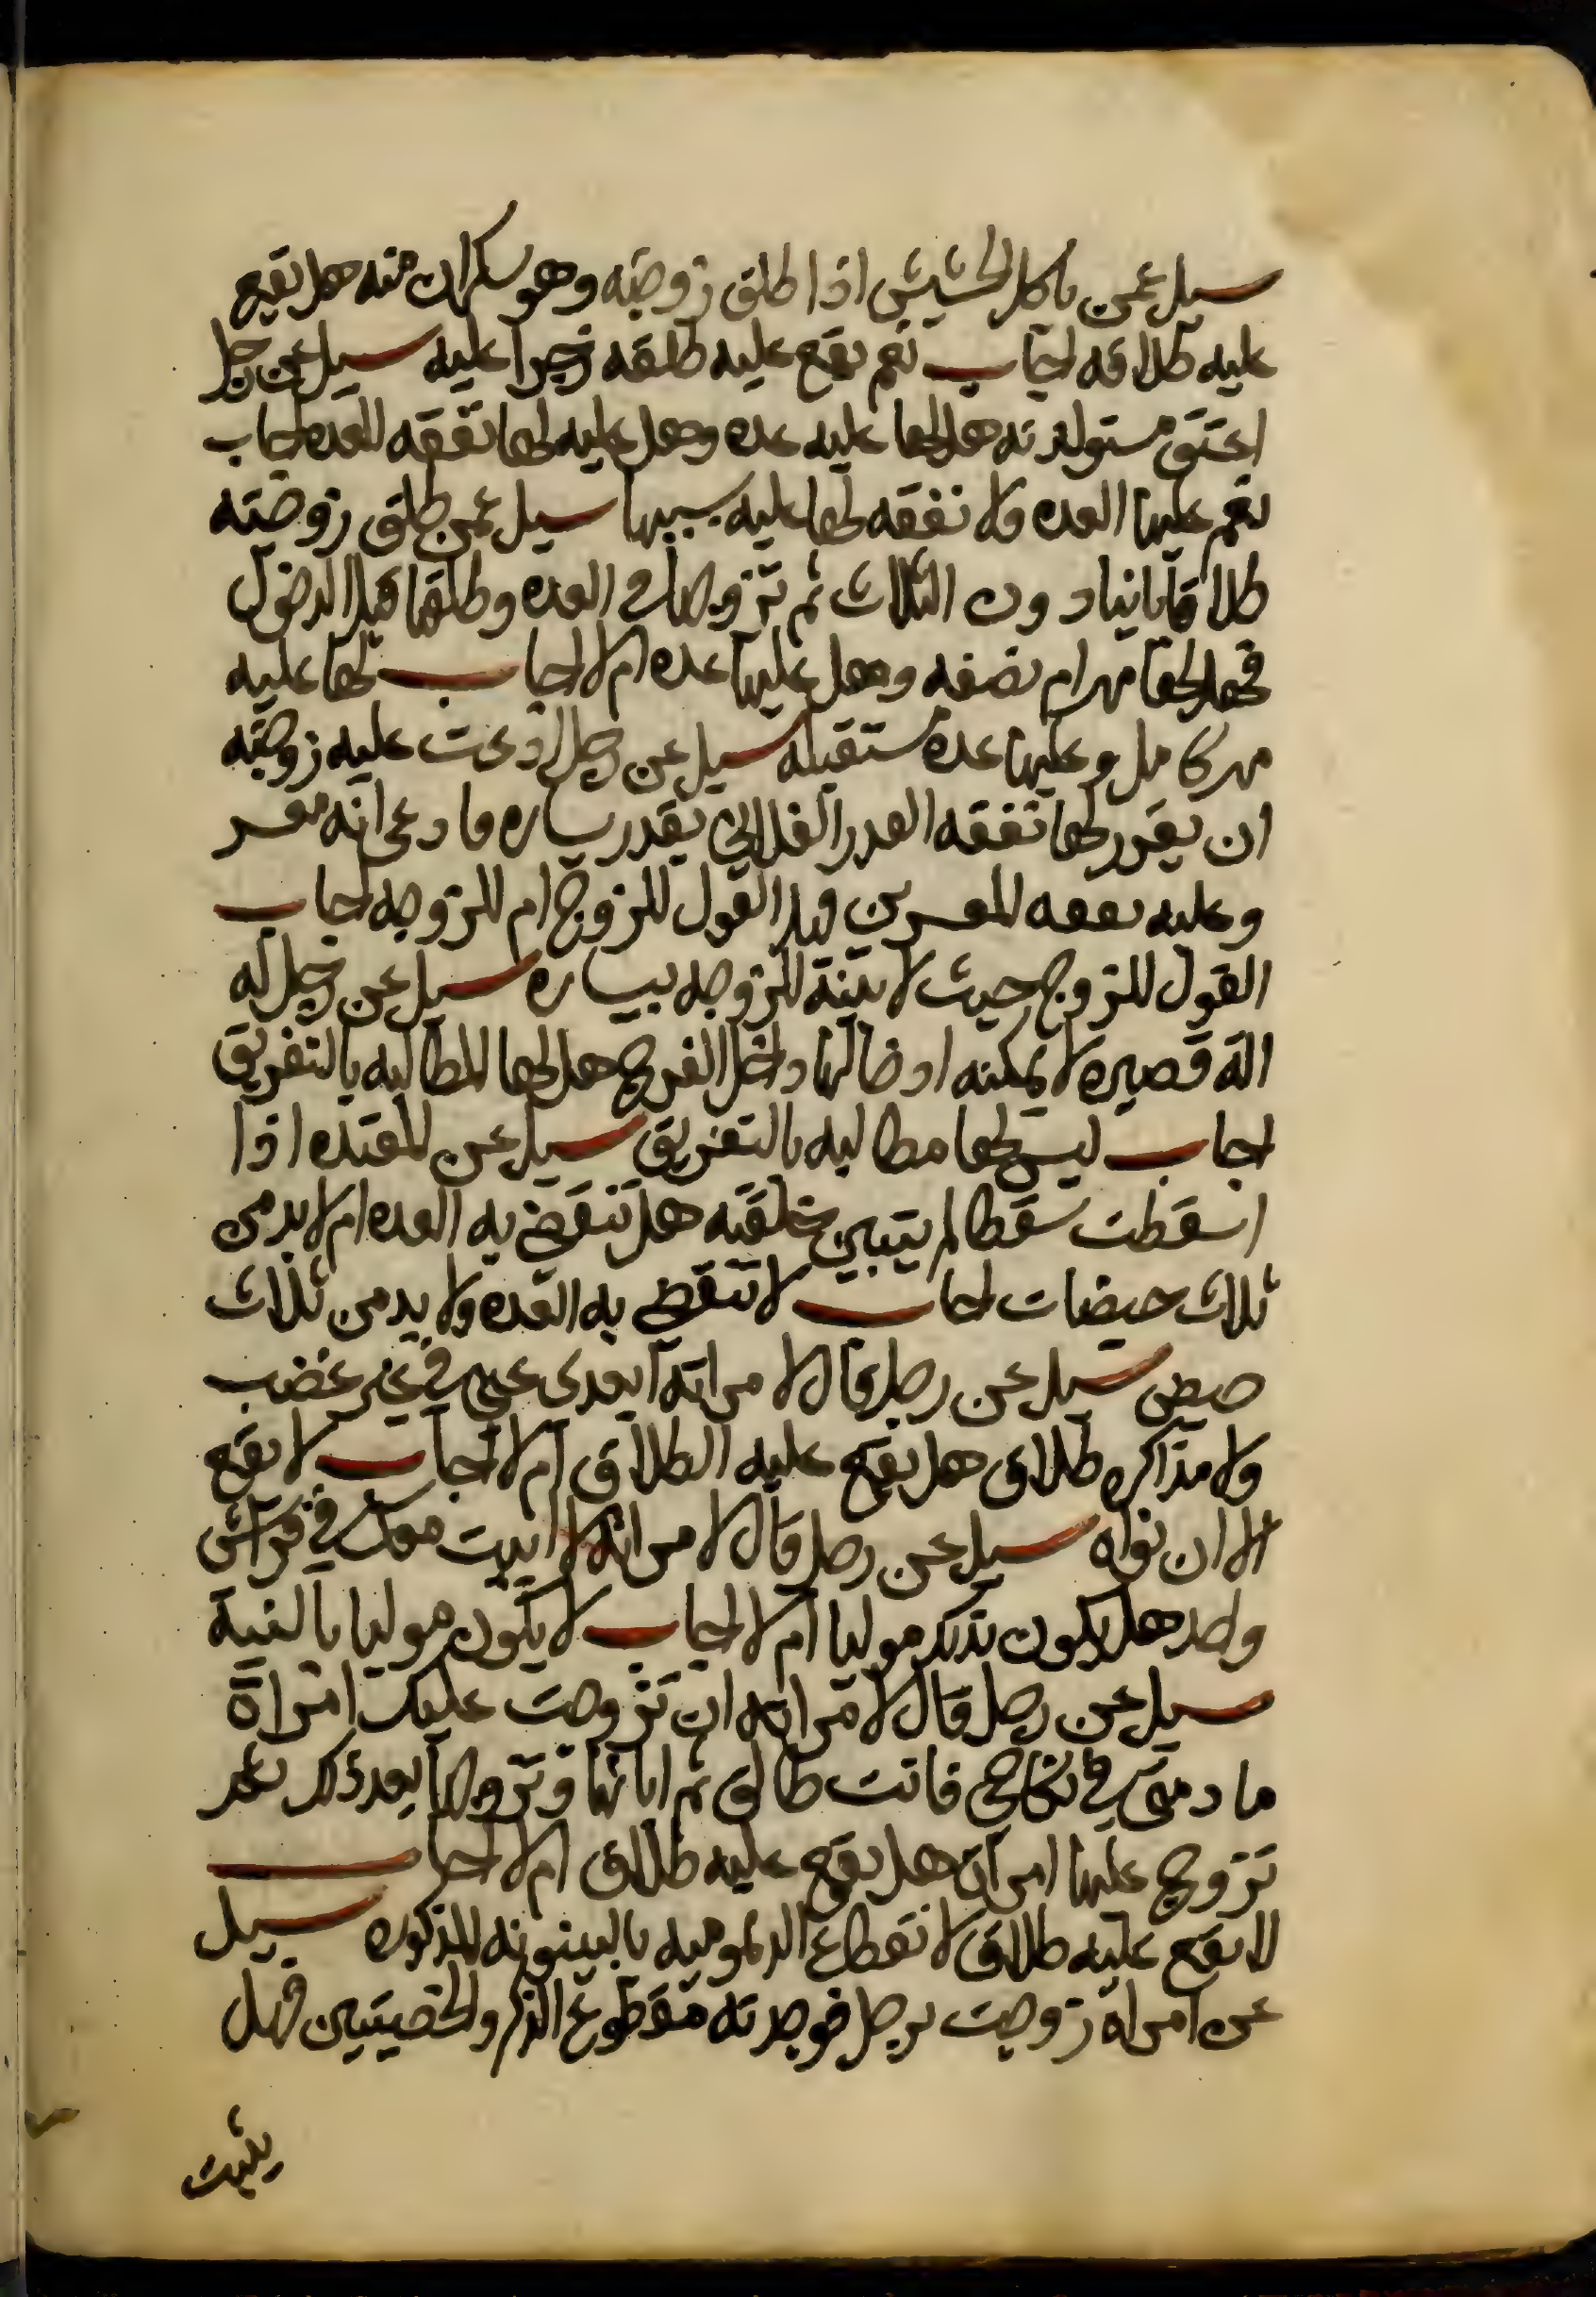 سيل عمن ياكل الحشيش اذا طلق زوجته وهو سكران منه هل يقع
عليه طلاقه اجاب نعم يقع عليه طلقه زجرا عليه سيل عن رجل
اعتق مستولدته هل لها عليه عده وهل عليه لها نفقه العده اجاب
نعم عليها العده ولا نفقه لها عليه بسببها سيل عمن طلق زوجته
طلاقا باينا دون الثلاث ثم تزوجها في العده وطلقها قبل الدخول
فهل لها مهر ام نصفه وهل عليها عده ام لا اجاب لها عليه
مهر كامل وعليها عده مستقبله سيل عن رجل ادعت عليه زوجته
ان يقرر لها نفقه القدر الفلاني بقدر يساره فادعى انه معسر
وعليه نفقه المعسرين فهل القول للزوج ام للزوجه اجاب
القول للزوج حيث لا بينة للزوجه بيساره سيل عن رجل له
الة قصيره لا يمكنه ادخالها داخل الفرج هل لها المطالبه بالتفريق
اجاب ليس لها مطالبه بالتفريق سيل عن المعتده اذا
اسقطت سقطا لم يتبين خلقته هل تنقضي به العده ام لا بد من
ثلاث حيضات اجاب لا تنقضي به العده ولا بد من ثلاث
حيض سيل عن رجل قال لامراته ابعدى عني في غير غضب
ولا مذاكره طلاق هل يقع عليه الطلاق ام لا اجاب لا يقع
الا ان نواه سيل عن رجل قال لامراته لا ابيت معك في فراش
واحد هل يكون بذلك موليا ام لا اجاب لا يكون موليا بالنية
سيل عن رجل قال لامراته ان تزوجت عليك امراة
ما دمتي في نكاحي فانت طالق ثم ابانها وتزوجها بعد ذلك ثم
تزوج عليها امراة هل يقع عليه طلاق ام لا اجاب
لا يقع عليه طلاق لانقطاع الديموميه بالبينونه المذكوره سيل
عن امراة زوجت برجل فوجدته مقطوع الذكر والخصيتين فهل
يثبت